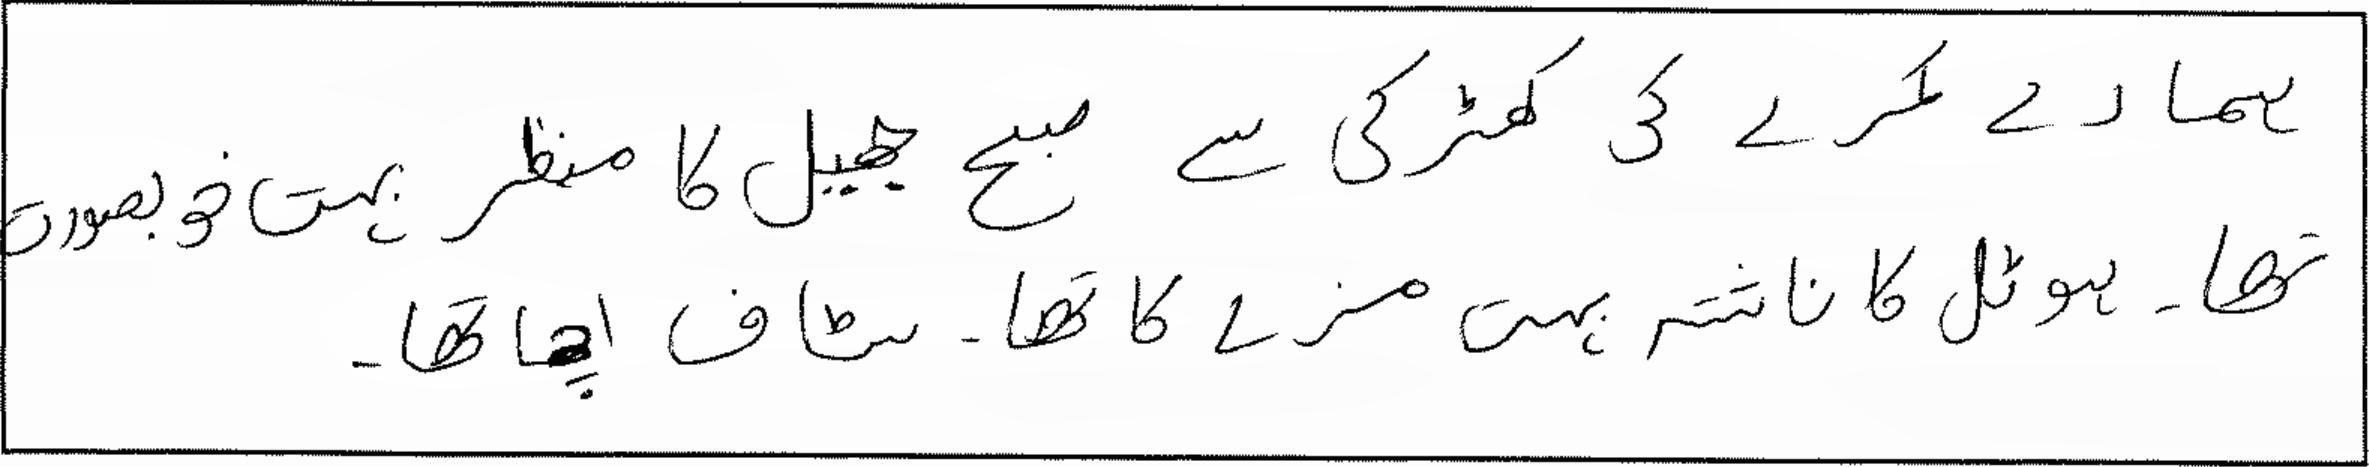 ہمارے کمرے کی کھڑکی سے صبح جھیل کا منظر بہت خوبصورت
تھا۔ ہوٹل کا ناشتہ بہت مزے کا تھا۔ سٹاف اچھا تھا۔